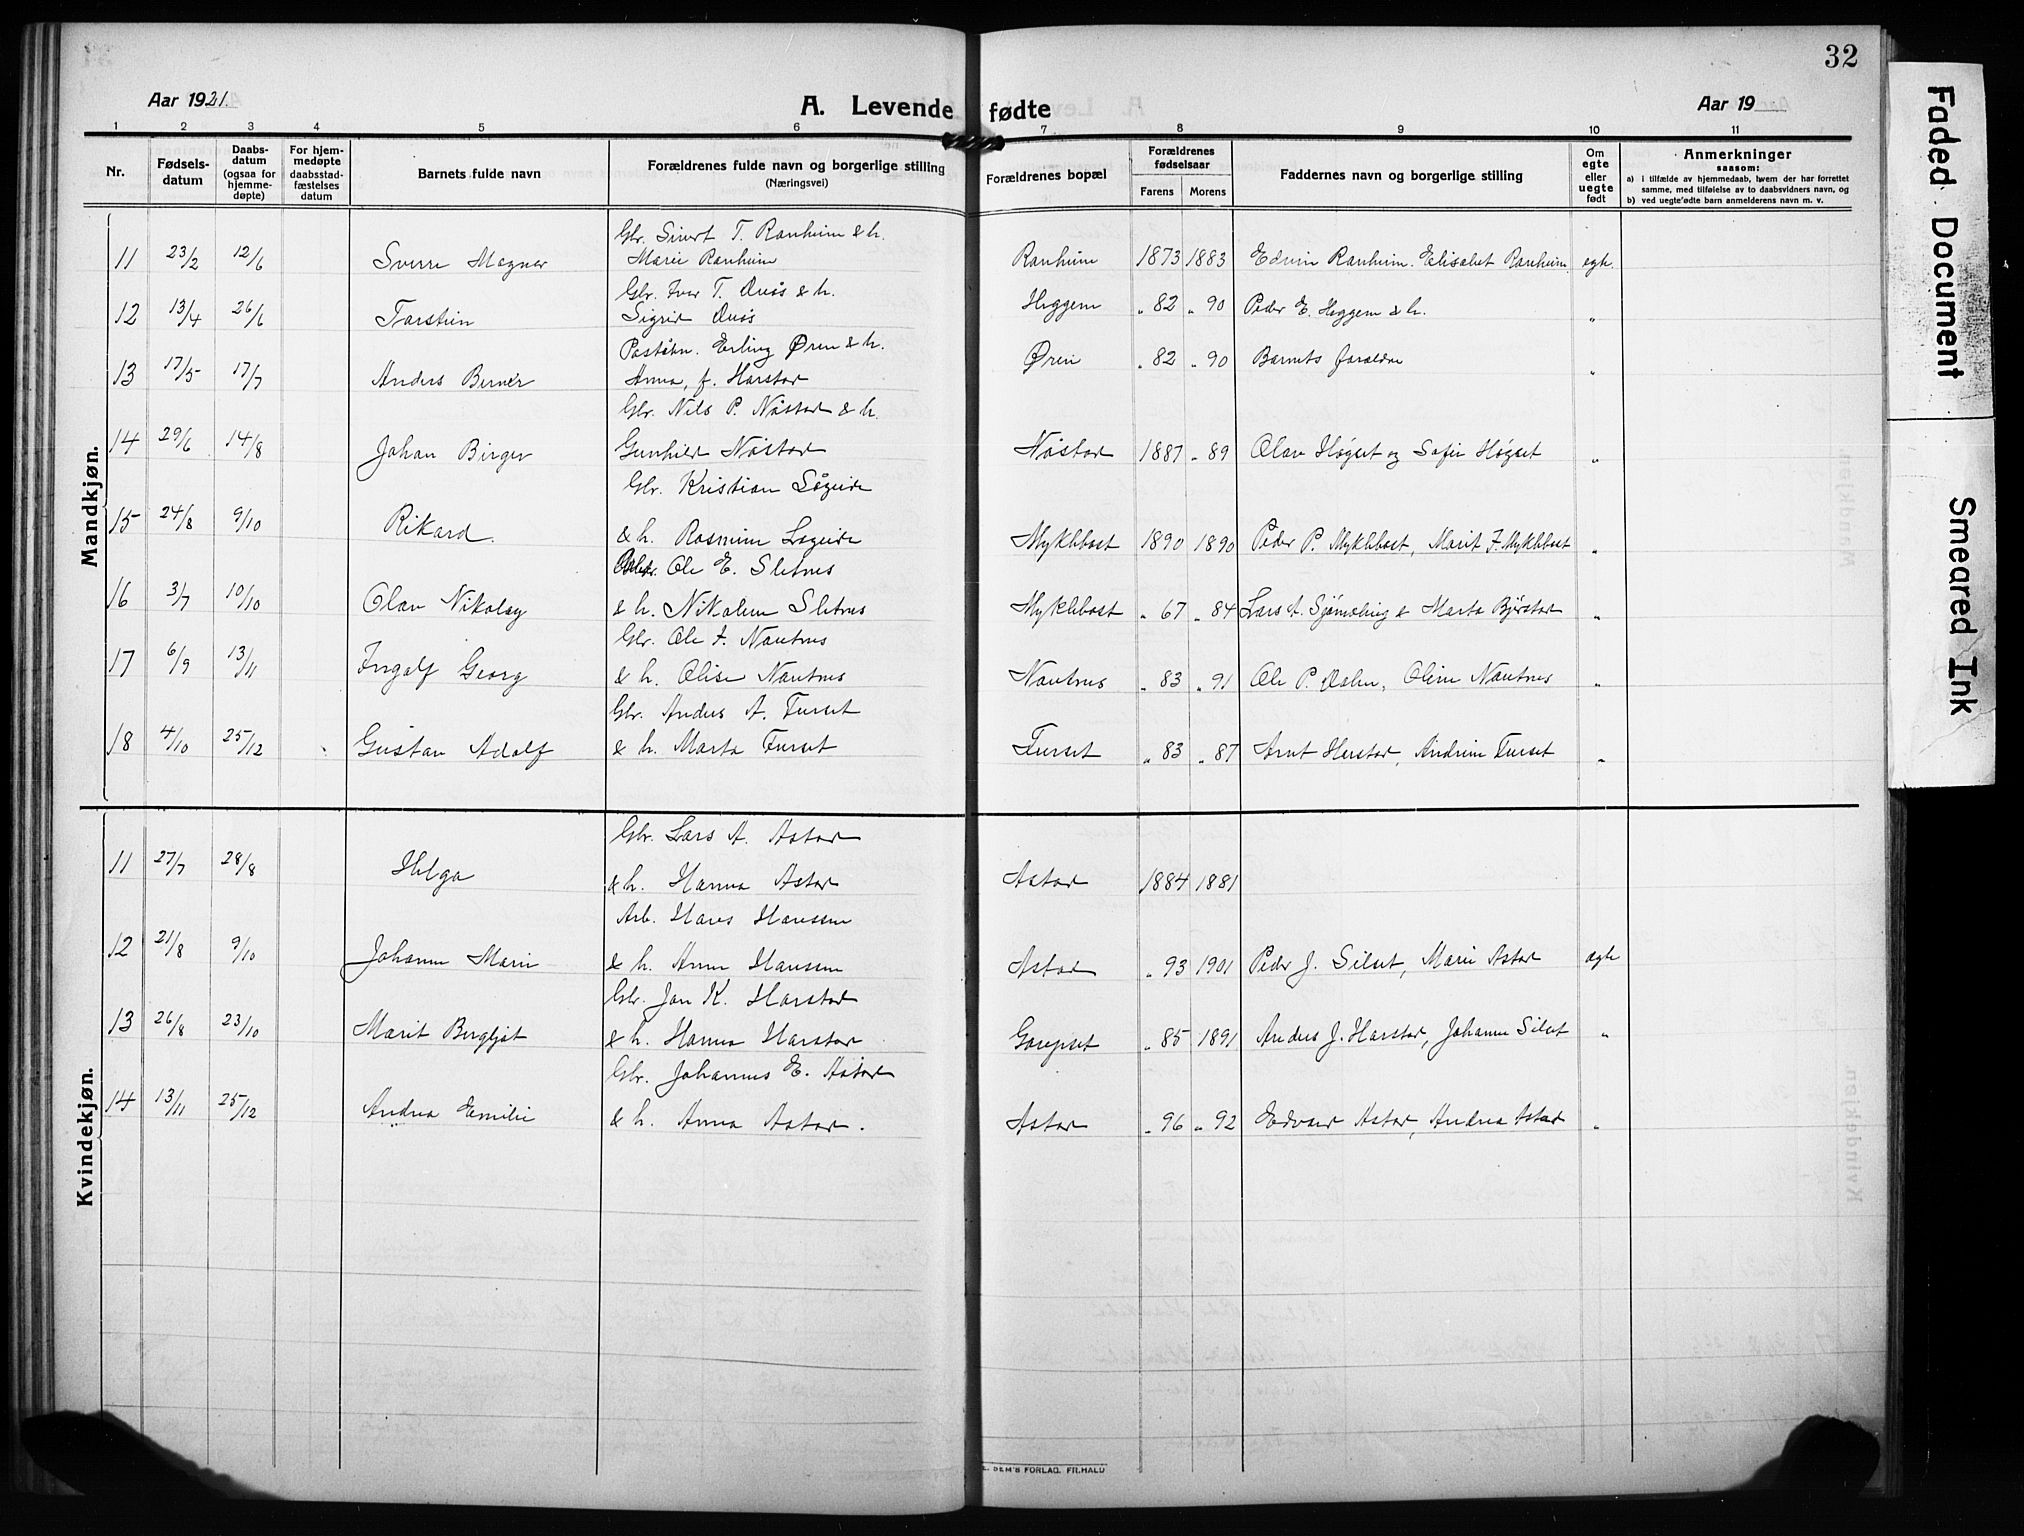 32
Aar 1921.
A. Levende fødte
Aar 19
1 2 3 4 5 6 7 8 9 10 11
Nr.
Fødsels-
datum
Daabs-
datum
(ogsaa for
hjemme-
døpte)
For hjem-
medøpte
daabsstad-
fæstelses
datum
Barnets fulde navn
Forældrenes fulde navn og borgerlige stilling
(Næringsvei)
Forældrenes bopæl
Forældrenes
fødselsaar
Farens Morens
Faddernes navn og borgerlige stilling
Om
egte
eller
uegte
født
Anmerkninger
saasom:
a) i tilfælde av hjemmedaab, hvem der har forrettet
samme, med tilføielse av to daabsvidners navn, og
b) ved uegte fødte barn anmelderens navn m. v.
Mandkjøn.
Gbr. Sivert T. Ranheim & h.
11 23/2 12/6 Sverre Magnar Marie Ranheim Ranheim 1873 1883 Edvin Ranheim. Elisabet Ranheim. egte.
Gbr. Ivar T. Duås & h.
12 13/4 26/6 Torstein Sigrid Duås Heggem " 82 " 90 Peder E. Heggem & h. "
Poståbn. Erling Øren & h.
13 17/5 17/7 Anders Bernér Anna, f. Harstad Øren " 82 " 90 Barnets forældre "
Gbr. Nils P. Nøstad & h.
14 29/6 14/8 Johan Birger Gunhild Nøstad Nøstad 1887 " 89 Olav Høgset og Sofie Høgset "
Gbr. Kristian Løgeide
15 24/8 9/10 Rikard. & h. Rasmine Løgeide Myklebost 1890 1890 Peder P. Myklebost, Marit F. Myklebost "
Ole E. Sletnes
16 3/7 10/10 Olav Nikolay & h. Nikoline Sletnes Myklebost " 67 " 84 Lars A. & Marta Bjørstad "
Gbr. Ole J. Nautnes
17 6/9 13/11 Ingolf Georg & h. Olise Nautnes Nautnes " 83 " 91 Ole P. Dalen, Oline Nautnes "
Gbr. Anders A. Furset
18 4/10 25/12 Gustav Adolf & h. Marta Furset Furset " 83 " 87 Arnt Herstad, Andrine Furset "
Kvindekjøn.
Gbr. Lars A. Astad
11 27/7 28/8 Helga & h. Hanna Astad Astad 1884 1881
Arb. Hans Hanssen
12 21/8 9/10 Johanne Marie & h. Anne Hanssen Astad " 93 1901 Peder J. Silset, Marie Astad egte
Gbr. Jon K. Harstad
13 26/8 23/10 Marit Bergljot & h. Hanna Harstad Gaupset " 85 1891 Anders J. Harstad, Johanne Silset "
Gbr. Johannes E. Astad
14 13/11 25/12 Andrea Emilie & h. Anna Astad. Astad " 96 " 92 Edvard Astad, Andrea Astad "
DEM'S FORLAG. FR.HALD
Faded Document
Smeared Ink